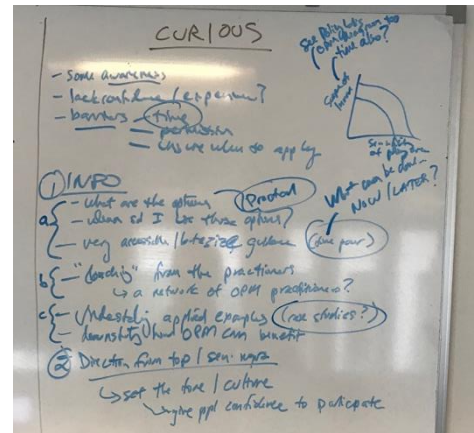 CURIOUS
See Policy Lab's
OPM diagram too
time also?
- some awareness
- lack confidence / experience?
- barriers - time
- permission
- unsure when to apply
Scope of
Sensitivity
of policy area
① INFO
- what are the options (Practical)
a - when sd I use these options?
- very accessible / bitesize guidance (one pager)
What can be done
NOW / LATER?
b - "coaching" from the practioners
↳ a network of OPM practitioners?
c - Understand applied examples (case studies?)
- demonstrate how OPM can benefit
② Direction from top / sen. mgrs
↳ set the tone / culture
↳ give ppl confidence to participate